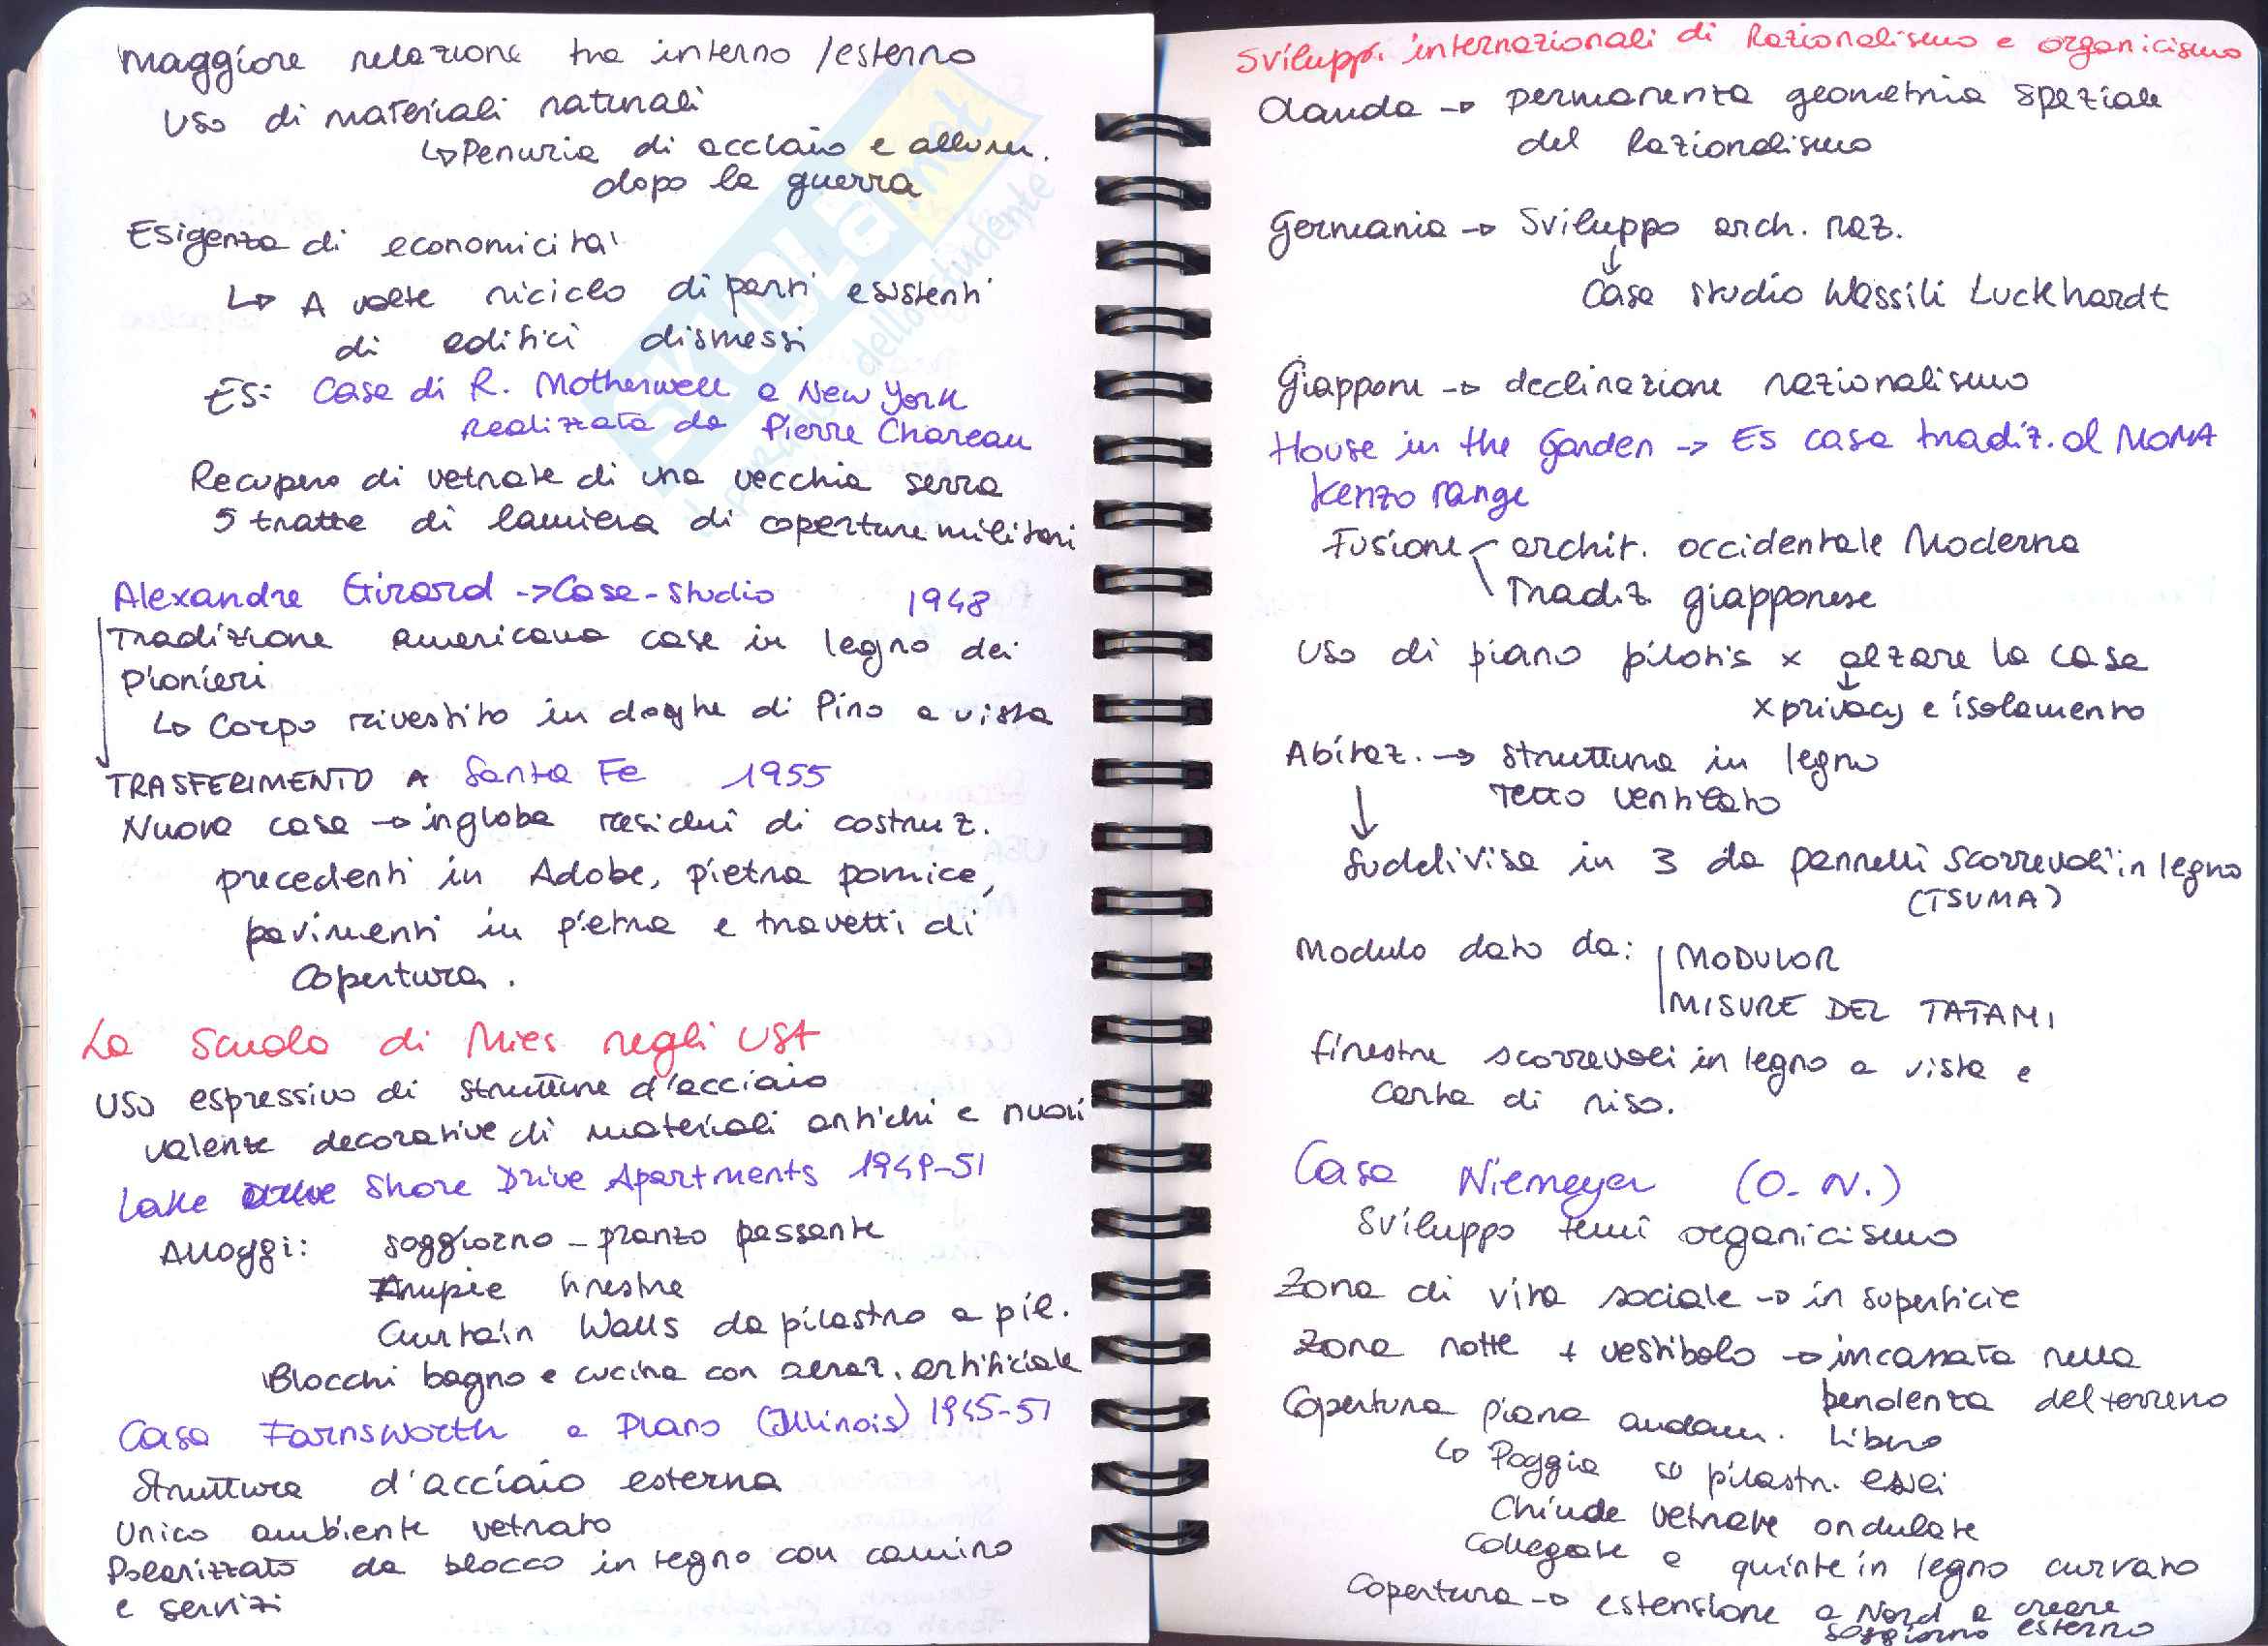 Maggiore relazione tra interno/esterno
Uso di materiali naturali
↳ Penuria di acciaio e allum.
dopo la guerra
Esigenza di economicità
↳ A volte riciclo di parti esistenti
di edifici dismessi
ES: Casa di R. Motherwell a New York
realizzata da Pierre Chareau
Recupero di vetrate di una vecchia serra
5 tratte di lamiera di coperture militari
Alexandre Girard -> Casa-studio 1948
Tradizione americana case in legno dei
pionieri
↳ Corpo rivestito in doghe di Pino a vista
TRASFERIMENTO A Santa Fe 1955
Nuova casa → ingloba residui di costruz.
precedenti in Adobe, pietra pomice,
pavimenti in pietra e travetti di
copertura.
La Scuola di Mies negli USA
Uso espressivo di strutture d'acciaio
valente decorative di materiali antichi e nuovi
Lake Shore Drive Apartments 1949-51
Alloggi: soggiorno-pranzo passante
Ampie finestre
Curtain Walls da pilastro a pil.
Blocchi bagno e cucina con aeraz. artificiale
Casa Farnsworth a Plano (Illinois) 1945-51
Struttura d'acciaio esterna
Unico ambiente vetrato
Polarizzato da blocco in legno con camino
e servizi
Sviluppi internazionali di Razionalismo e organicismo
Olanda → permanenza geometria spaziale
del Razionalismo
Germania → Sviluppo arch. raz.
↓
Casa studio Wassili Luckhardt
Giappone → declinazione razionalismo
House in the Garden → ES casa tradiz. al MOMA
Kenzo Tange
Fusione archit. occidentale Moderna
Tradiz. giapponese
Uso di piano pilotis x alzare la casa
↓
x privacy e isolamento
Abitaz. → struttura in legno
Tetto ventilato
↓
Suddivisa in 3 da pannelli scorrevoli in legno
(TSUMA)
Modulo dato da: MODULOR
MISURE DEL TATAMI
finestre scorrevoli in legno a vista e
carta di riso.
Casa Niemeyer (O. N.)
Sviluppo temi organicismo
Zona di vita sociale → in superficie
Zona notte + vestibolo → incassata nella
pendenza del terreno
Copertura piana andam. libero
↳ Poggia su pilastr. esei
Chiude vetrate ondulate
Collegate a quinte in legno curvato
Copertura → estensione a Nord a creare
soggiorno esterno
SKUOLA.net
il portale dello studente